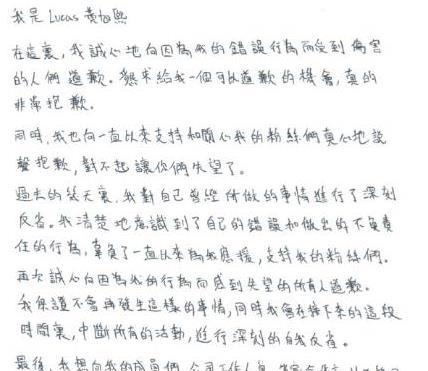 我是 Lucas 黃旭熙
在這裏，我誠心地向因為我的錯誤行為而受到傷害
的人們道歉。懇求給我一個可以道歉的機會，真的
非常抱歉。
同時，我也向一直以來支持和關心我的粉絲們真心地說
聲抱歉，對不起讓你們失望了。
過去的幾天裏，我對自己曾經所做的事情進行了深刻
反省。我清楚地意識到了自己的錯誤和做出的不負責
任的行為，辜負了一直以來為我應援，支持我的粉絲們。
再次誠心向因為我的行為而感到失望的所有人道歉。
我保證不會再發生這樣的事情，同時我會在接下來的這段
時間裏，中斷所有的活動，進行深刻的自我反省。
最後，我想向我的成員們，公司工作人員